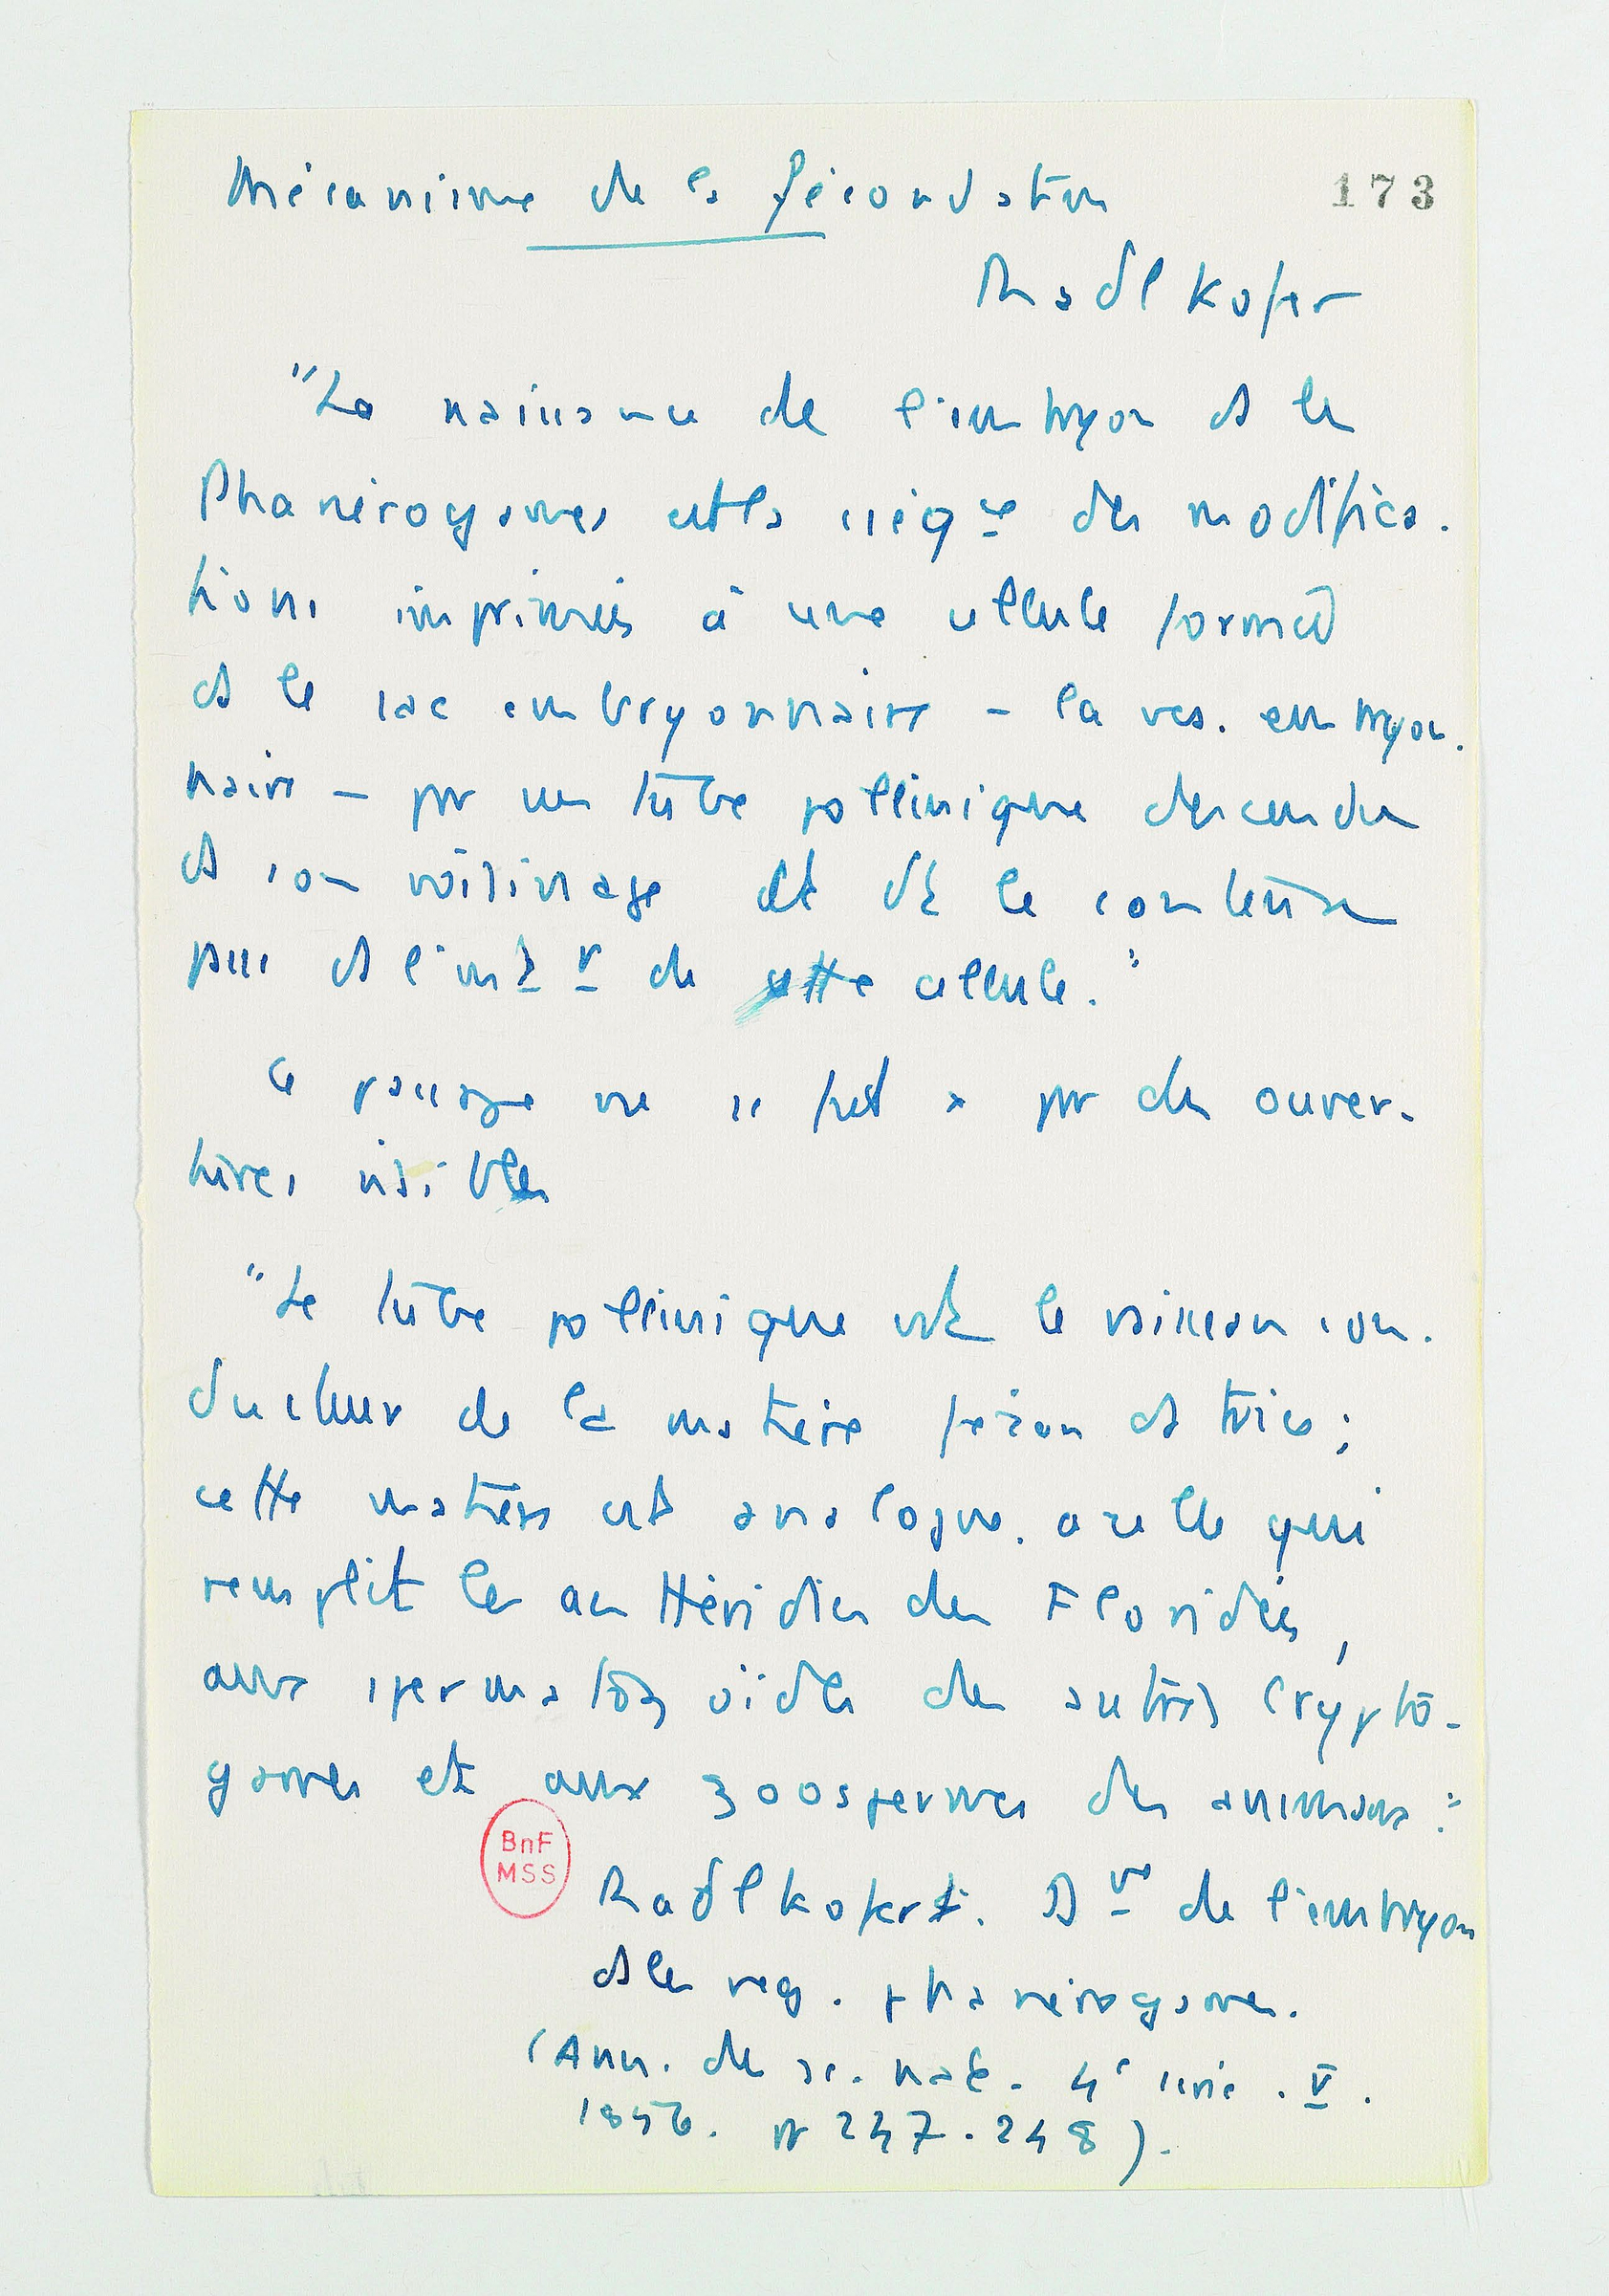 Mécanisme de la fécondation
173
Radlkofer
"La naissance de l'embryon ds les
Phanérogames est la cséqce des modifica-
tions imprimées à une cellule formée
ds le sac embryonnaire - la ves. embryon-
naire - par un tube pollinique descendu
ds son voisinage et dt le contenu
passe ds l'intr de cette cellule."
Ce passage ne se fait pas par des ouver-
tures visibles
"Le tube pollinique est le vaisseau con-
ducteur de la matière fécondatrice ;
cette matière est analogue à celle qui
remplit les anthéridies des Floridées,
aux spermatozoïdes des autres Crypto-
games et aux zoospermes des animaux."
BnF
MSS
Radlkofer. de l'embryon
ds les vég. phanérogames.
(Ann. des sc. nat. 4e série. V.
1856. p 247-248).